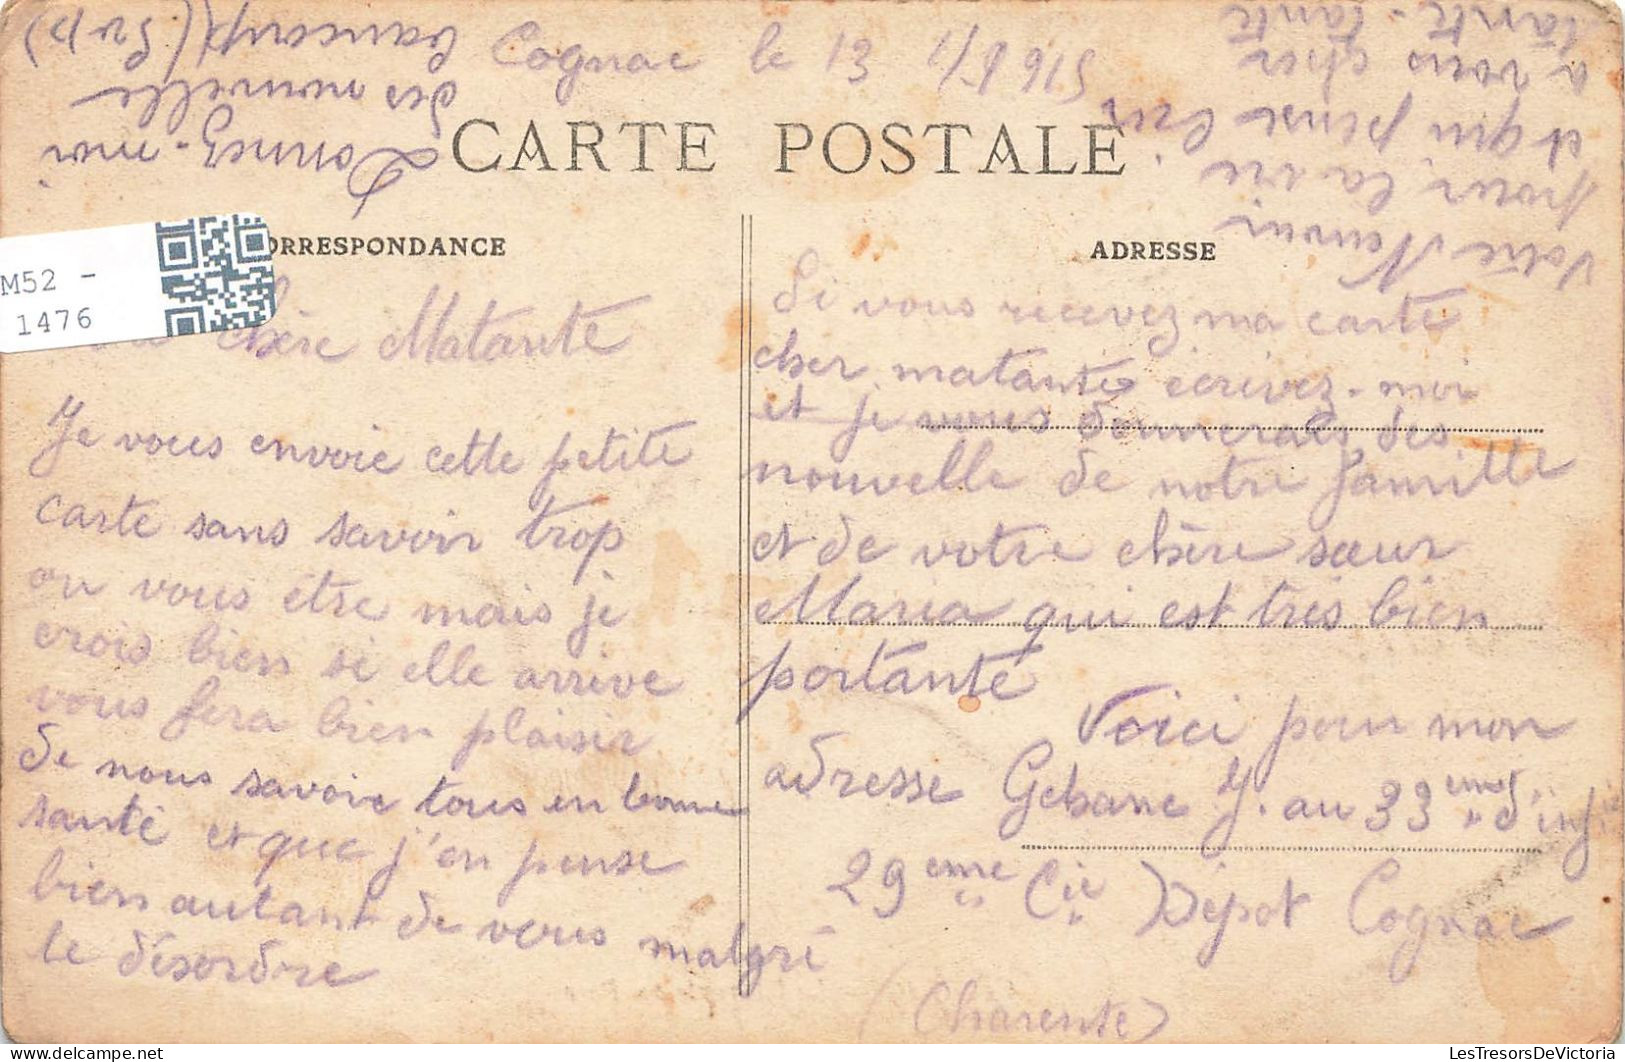 Cognac le 13 1/8 915
CARTE POSTALE
ORRESPONDANCE
ADRESSE
M52 -
1476
chère Matante
Je vous envoie cette petite
carte sans savoir trop
ou vous être mais je
crois bien si elle arrive
vous fera bien plaisir
de nous savoir tous en bonne
santé et que j'en pense
bien autant de vous malgré
le désordre
Si vous recevez ma carte
cher matante écrivez-moi
et je vous donnerais des
nouvelle de notre famille
et de votre chère sœur
Maria qui est très bien
portante
Voici pour mon
adresse Gebane J. au 33eme d'inf
29eme Cie Dépot Cognac
(Charente)
Donnez-moi
des nouvelle
beaucoup (S v p)
Votre Neuveu
pour la vie
et qui pense bien
à vous cher
tante
LesTresorsDeVictoria